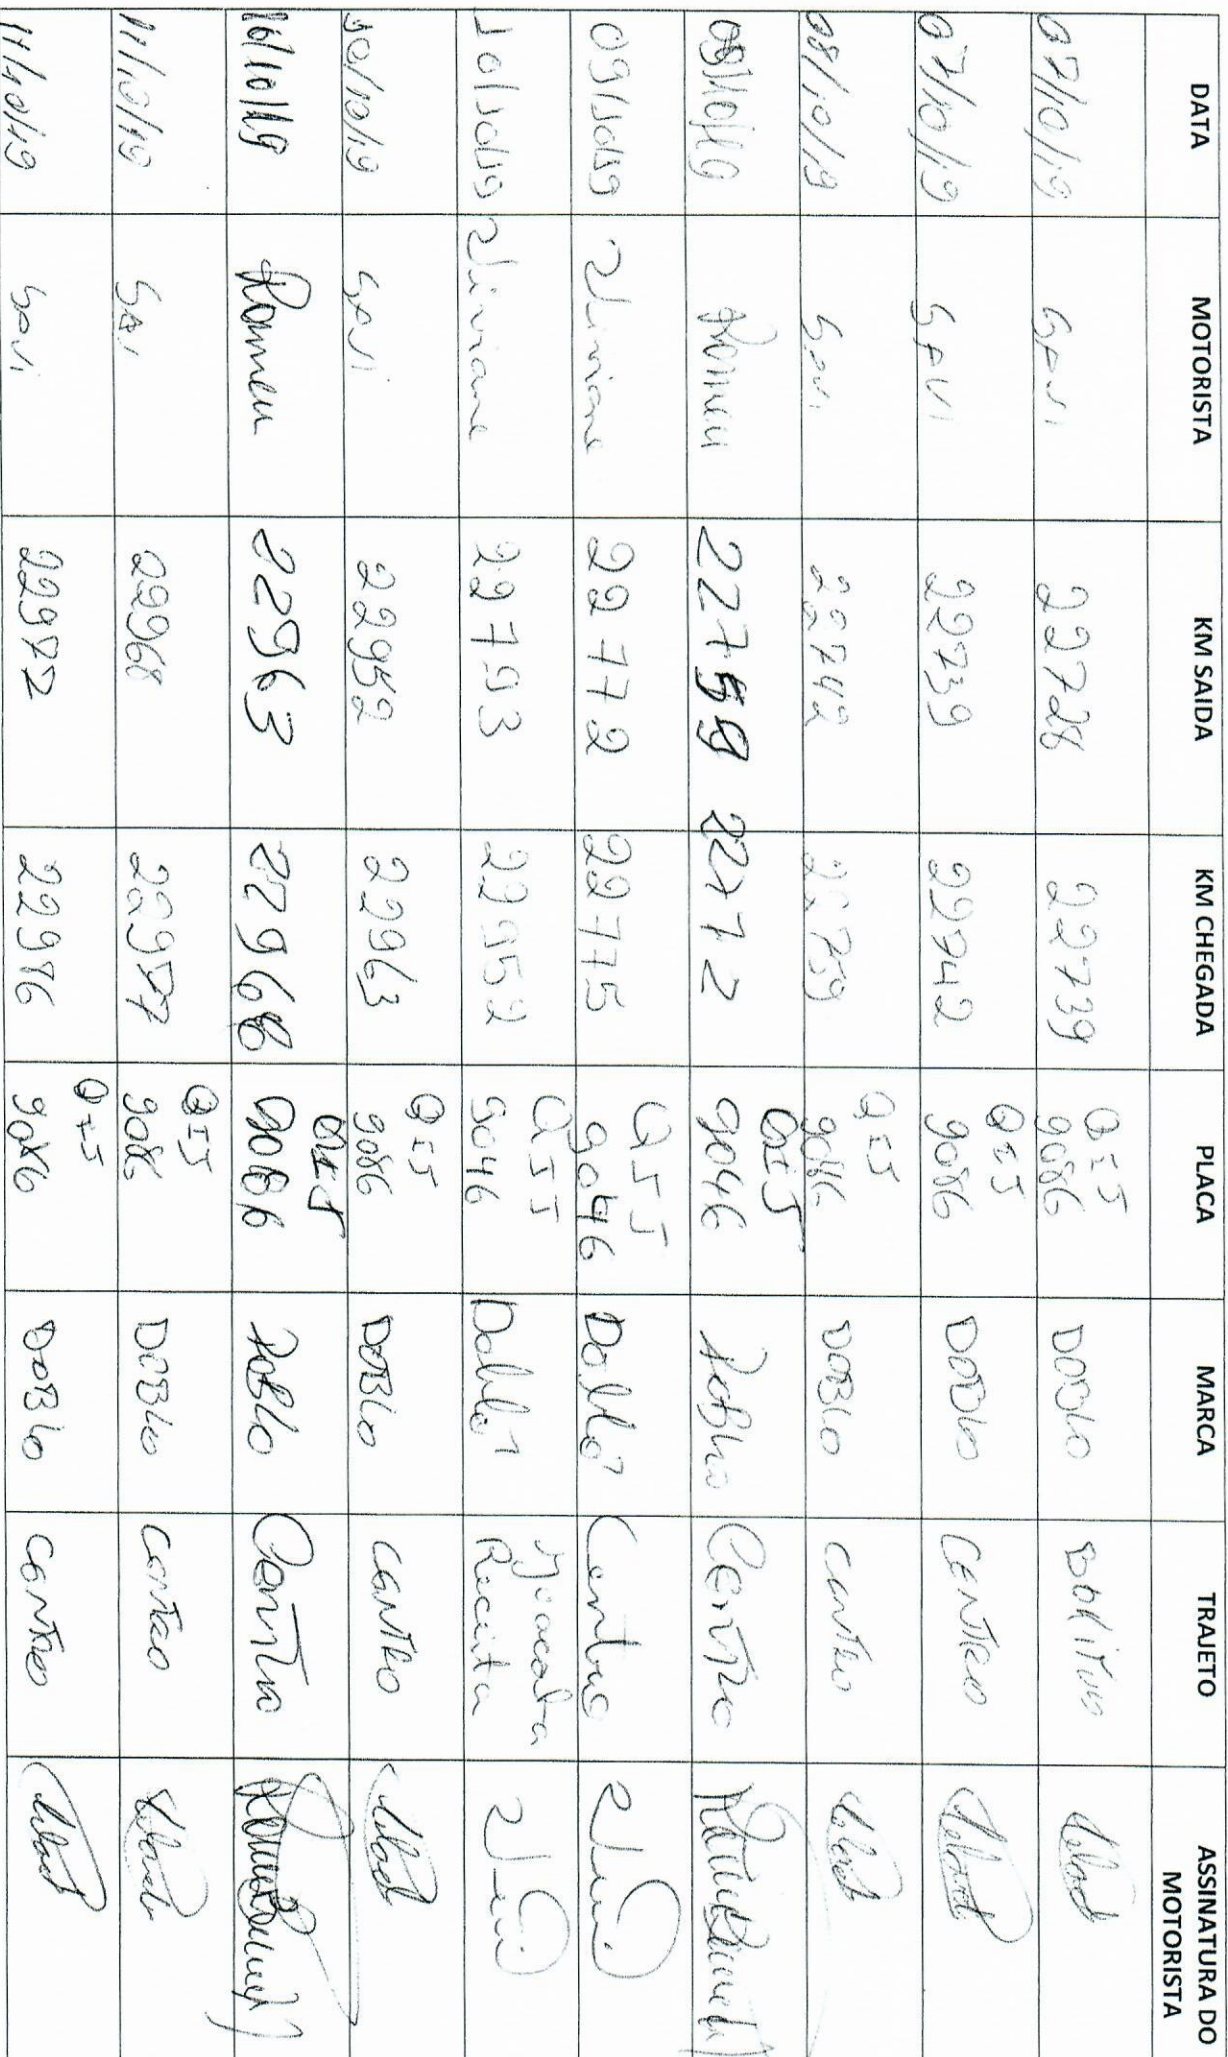 DATA MOTORISTA KM SAIDA KM CHEGADA PLACA MARCA TRAJETO ASSINATURA DO MOTORISTA
07/10/19 SAVI 22728 22739 QIJ 9086 DOBLO
07/10/19 SAVI 22739 22742 QIJ 9086 DOBLO CENTRO
08/10/19 SAVI 22742 22759 QIJ 9086 DOBLO CENTRO
09/10/19 Romeu 22759 22772 QIJ 9046 Doblo Centro
09/10/19 Viviane 22772 22775 QIJ 9046 Doblo Centro
10/10/19 Viviane 22793 22952 QIJ 9046 Doblo Receita
10/10/19 SAVI 22952 22963 QIJ 9086 DOBLO CENTRO
10/10/19 Romeu 22963 22968 QIJ 9086 DOBLO Centro
11/10/19 SAVI 22968 22977 QIJ 9086 DOBLO CENTRO
11/10/19 SAVI 22972 22976 QIJ 9086 DOBLO CENTRO